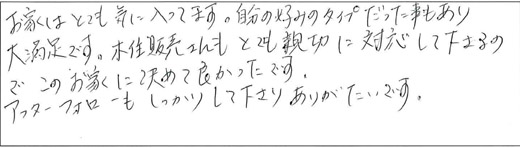 お家はとても気に入ってます。自分の好みのタイプだった事もあり
大満足です。木住販売さんもとても親切に対応して下さるの
でこのお家に決めて良かったです。
アフターフォローもしっかりして下さりありがたいです。